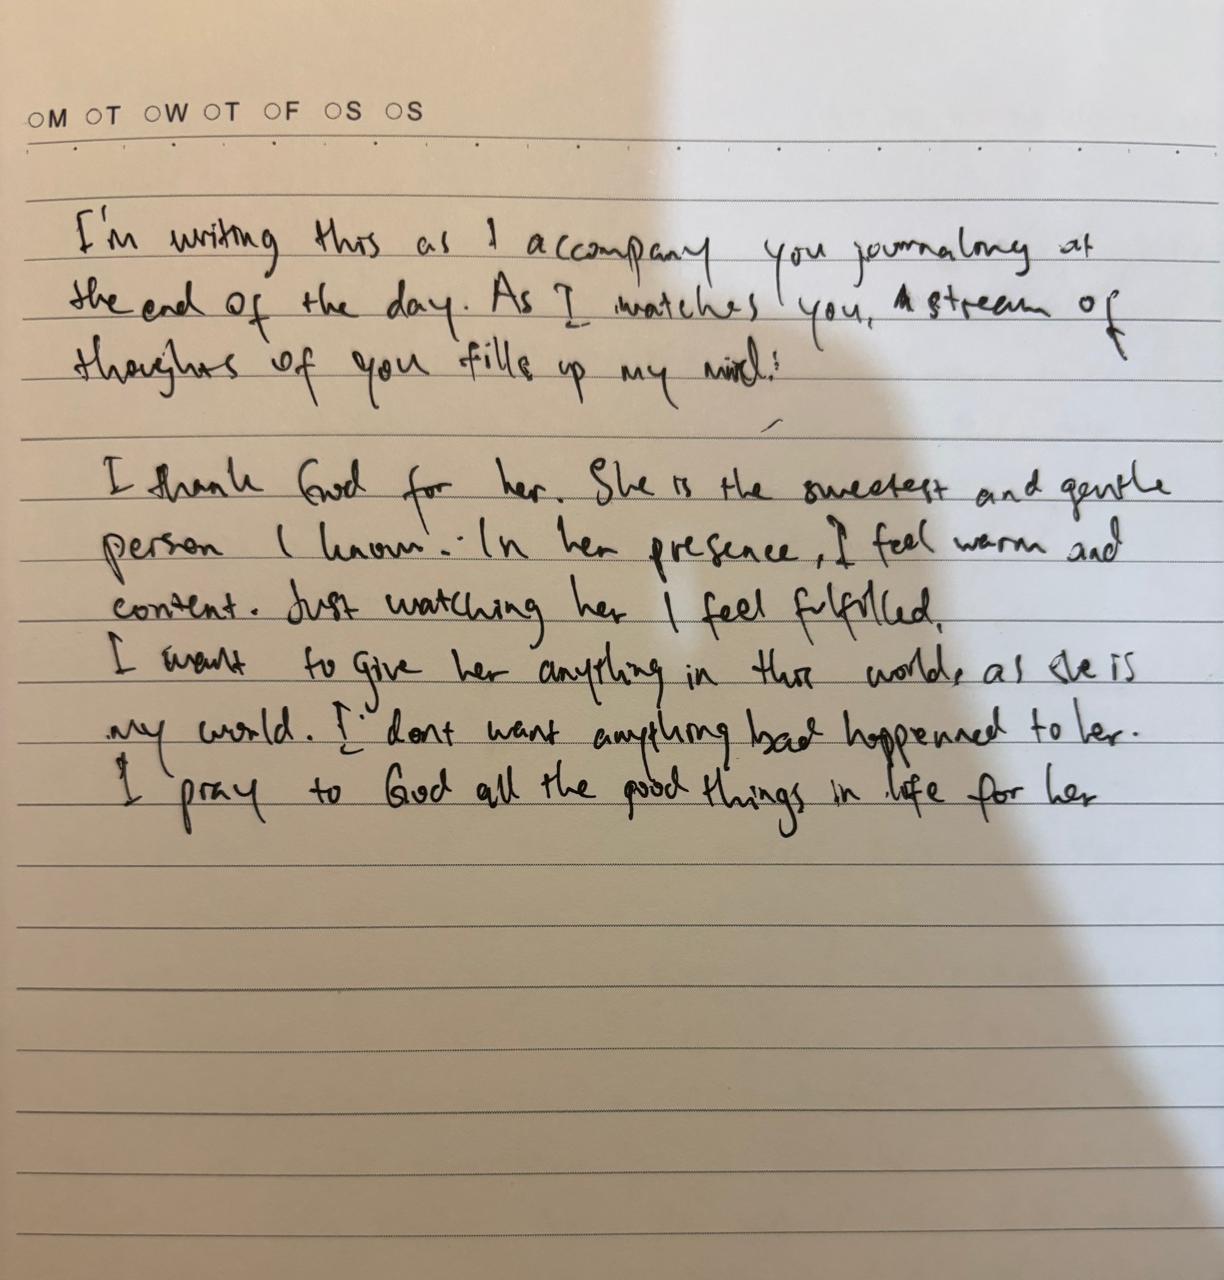 OM OT OW OT OF OS OS
I'm writing this as I accompany you journalong at
the end of the day. As I watches you, A stream of
thoughts of you fills up my mind:
I thank God for her. She is the sweetest and gentle
person I know. In her presence, I feel warm and
content. Just watching her I feel fulfilled.
I want to give her anything in this world, as she is
my world. I dont want anything bad happenned to her.
I pray to God all the good things in life for her